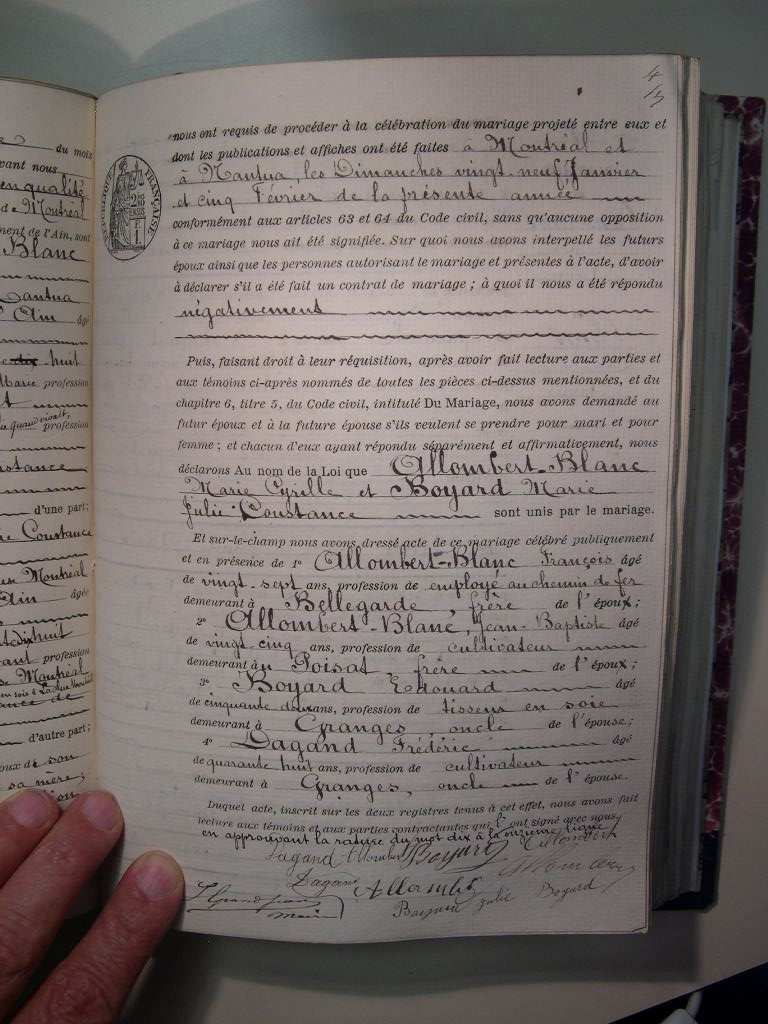 4
nous ont requis de procéder à la célébration du mariage projeté entre eux et
dont les publications et affiches ont été faites à Montréal et
à Nantua, les Dimanches vingt-neuf Janvier
et cinq Février de la présente année
conformément aux articles 63 et 64 du Code civil, sans qu'aucune opposition
à ce mariage nous ait été signifiée. Sur quoi nous avons interpellé les futurs
époux ainsi que les personnes autorisant le mariage et présentes à l'acte, d'avoir
à déclarer s'il a été fait un contrat de mariage ; à quoi il nous a été répondu
négativement
Puis, faisant droit à leur réquisition, après avoir fait lecture aux parties et
aux témoins ci-après nommés de toutes les pièces ci-dessus mentionnées, et du
chapitre 6, titre 5, du Code civil, intitulé Du Mariage, nous avons demandé au
futur époux et à la future épouse s'ils veulent se prendre pour mari et pour
femme ; et chacun d'eux ayant répondu séparément et affirmativement, nous
déclarons Au nom de la Loi que Allombert-Blanc
Marie Cyrille et Boyard Marie
Julie Constance sont unis par le mariage.
Et sur-le-champ nous avons dressé acte de ce mariage célébré publiquement
et en présence de 1° Allombert-Blanc François âgé
de vingt-sept ans, profession de employé au chemin de fer
demeurant à Bellegarde, frère de l'époux ;
2° Allombert-Blanc, Jean-Baptiste âgé
de vingt cinq ans, profession de cultivateur
demeurant au Poisat, frère de l'époux ;
3° Boyard Edouard âgé
de cinquante deux ans, profession de tisseur en soie
demeurant à Granges, oncle de l'épouse ;
4° Dagand Frédéric âgé
de quarante huit ans, profession de cultivateur
demeurant à Granges, oncle de l'épouse.
Duquel acte, inscrit sur les deux registres tenus à cet effet, nous avons fait
lecture aux témoins et aux parties contractantes qui l'ont signé avec nous
en approuvant la rature du mot dix à la onzième ligne
Dagand Boyard
Dagand Allombert
Grandjean Boyard Julie Boyard
maire
RÉPUBLIQUE FRANÇAISE
du mois
vant nous
en qualité
de Montréal
ment de l'Ain, sont
Blanc
Nantua
Ain âgé
huit
Marie profession
profession
nstance
d'une part ;
Constance
Montréal
Ain âgée
huit
profession
Montréal
d'autre part ;
oux de son
sa mère ;